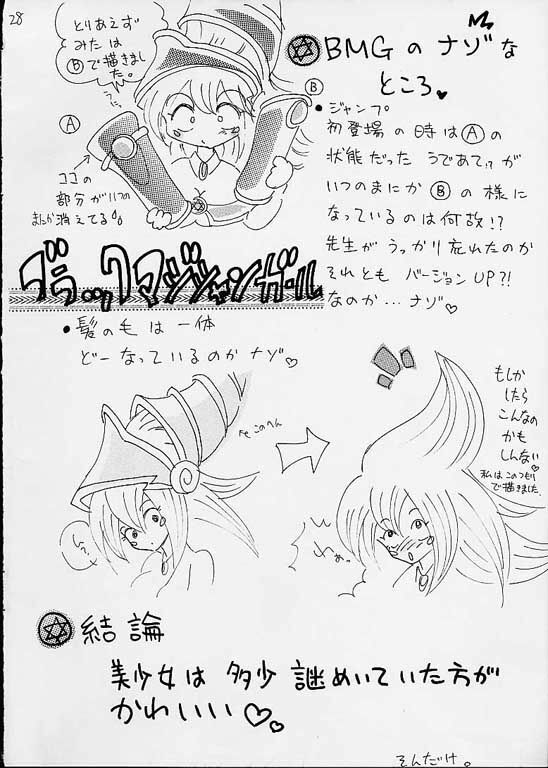 28
とりあえず
みたは
Ⓑで描きまし
た。
Ⓐ
Ⓑ
ココの
部分がいつの
まにか消えてる
BMGのナゾな
ところ♥
・ジャンプ
初登場の時はⒶの
状態だった うであてが
いつのまにか Ⓑの様に
なっているのは何故!?
先生が うっかり 忘れたのか
それとも バージョンUP?!
なのか…ナゾ♡
ブラックマジシャンガール
・髪の毛は一体
どーなっているのか ナゾ♡
このへん
もしか
したら
こんなの
かも
しんない♡
私はこのつもり
で描きました。
結論
美少女は 多少 謎めいていた方が
かわいい♡。
そんだけ。